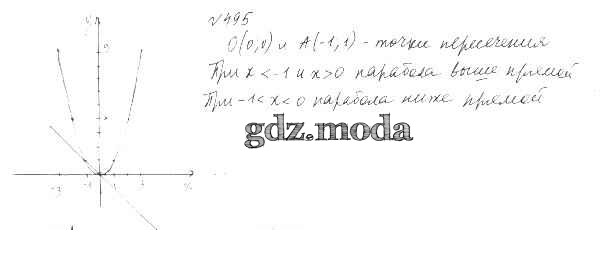 №495
O(0,0) и A(-1,1) - точки пересечения
При x < -1 и x > 0 парабола выше прямой
При -1 < x < 0 парабола ниже прямой
gdz.moda
y
9
-3 -1 1 3 x